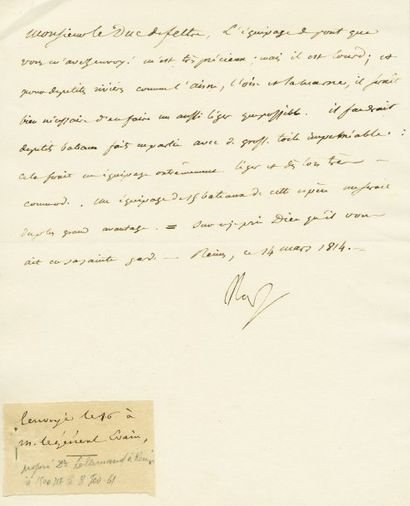 Monsieur le Duc de feltre, L'équipage de pont que
vous m'avez envoyé m'est très précieux : mais il est lourd ; et
pour de petites rivières comme l'aisne, l'oise et la marne, il serait
bien nécessaire d'en faire un aussi léger que possible. il faudrait
de petits bateaux faits en partie avec de grosse toile imperméable :
cela serait un équipage extrêmement léger et dès lors très
commode. un équipage de 15 bateaux de cette espèce me serait
du plus grand avantage. = Sur ce je prie Dieu qu'il vous
ait en sa sainte garde. — Reims, ce 14 mars 1814. —
Renvoyé le 16 à
m. le général Evain,